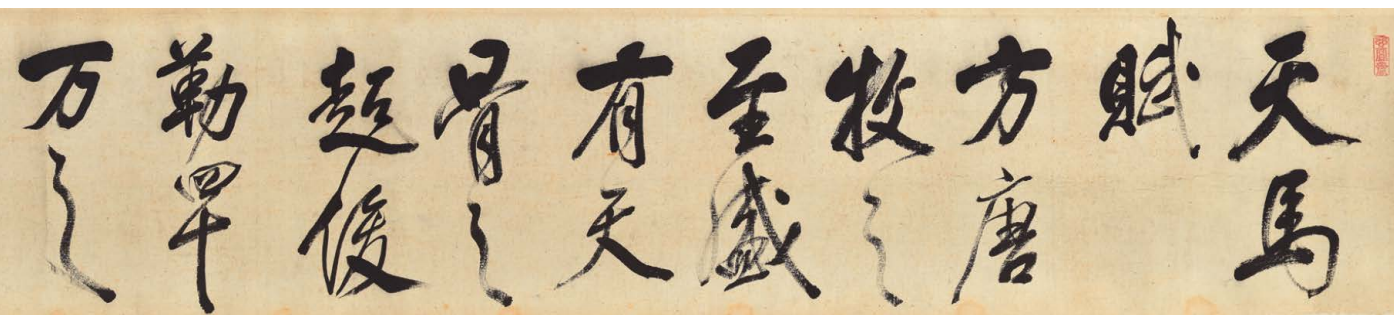 天馬
賦
方唐
牧之
至盛
有天
骨之
超俊
勒四十
万之